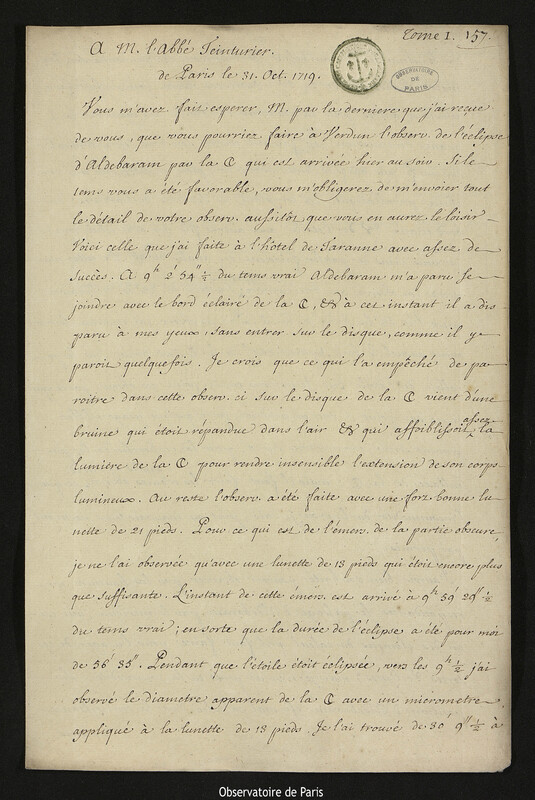 Tome I. 157.
A M. l'Abbé Teinturier.
de Paris le 31. Oct. 1719.
OBSERVATOIRE
DE
PARIS
Vous m'avez fait esperer, M. par la derniere que j'ai reçue
de vous, que vous pourriez faire à Verdun l'observ. de l'éclipse
d'Aldebaram par la ☾ qui est arrivée hier au soir. Si le
tems vous a été favorable, vous m'obligerez de m'envoier tout
le détail de votre observ. aussitôt que vous en aurez le loisir
Voici celle que j'ai faite à l'hôtel de Taranne avec assez de
succès. A 9h 2' 54" ½ du tems vrai Aldebaram m'a paru se
joindre avec le bord éclairé de la ☾, & à cet instant il a dis
paru à mes yeux, sans entrer sur le disque, comme il y
paroit quelquefois. Je crois que ce qui l'a empêché de pa
roitre dans cette observ. ci sur le disque de la ☾ vient d'une
bruine qui étoit répandue dans l'air & qui affoiblissoit assez la
lumière de la ☾ pour rendre insensible l'extension de son corps
lumineux. Au reste l'observ. a été faite avec une fort bonne lu
nette de 21 pieds. Pour ce qui est de l'émers. de la partie obscure,
je ne l'ai observée qu'avec une lunette de 13 pieds qui étoit encore plus
que suffisante. L'instant de cette émers. est arrivé à 9h 59' 29" ½
du tems vrai; en sorte que la durée de l'éclipse a été pour moi
de 56' 35". Pendant que l'étoile étoit éclipsée, vers les 9h ½ j'ai
observé le diametre apparent de la ☾ avec un micrometre
appliqué à la lunette de 13 pieds. Je l'ai trouvé de 30' 9" ½ à
Observatoire de Paris